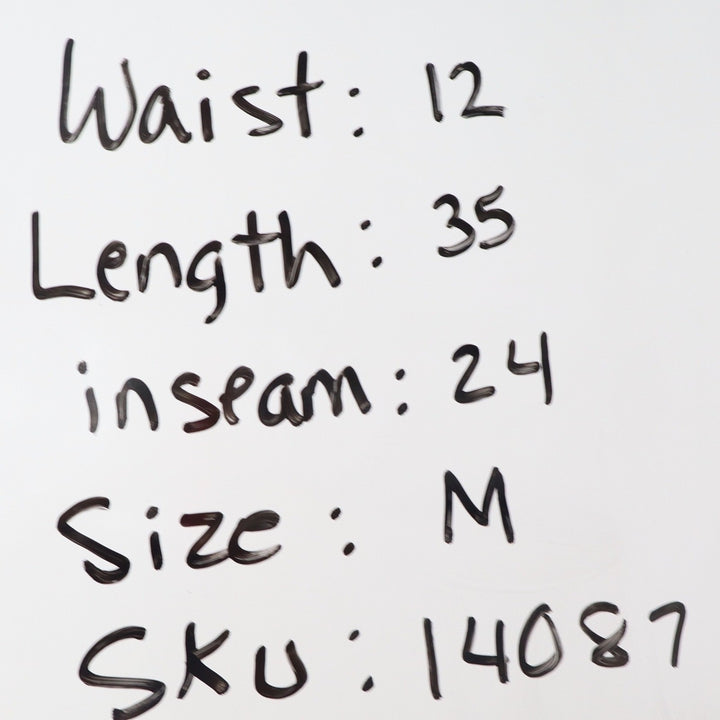 Waist: 12
Length: 35
inseam: 24
Size: M
SKU: 14087